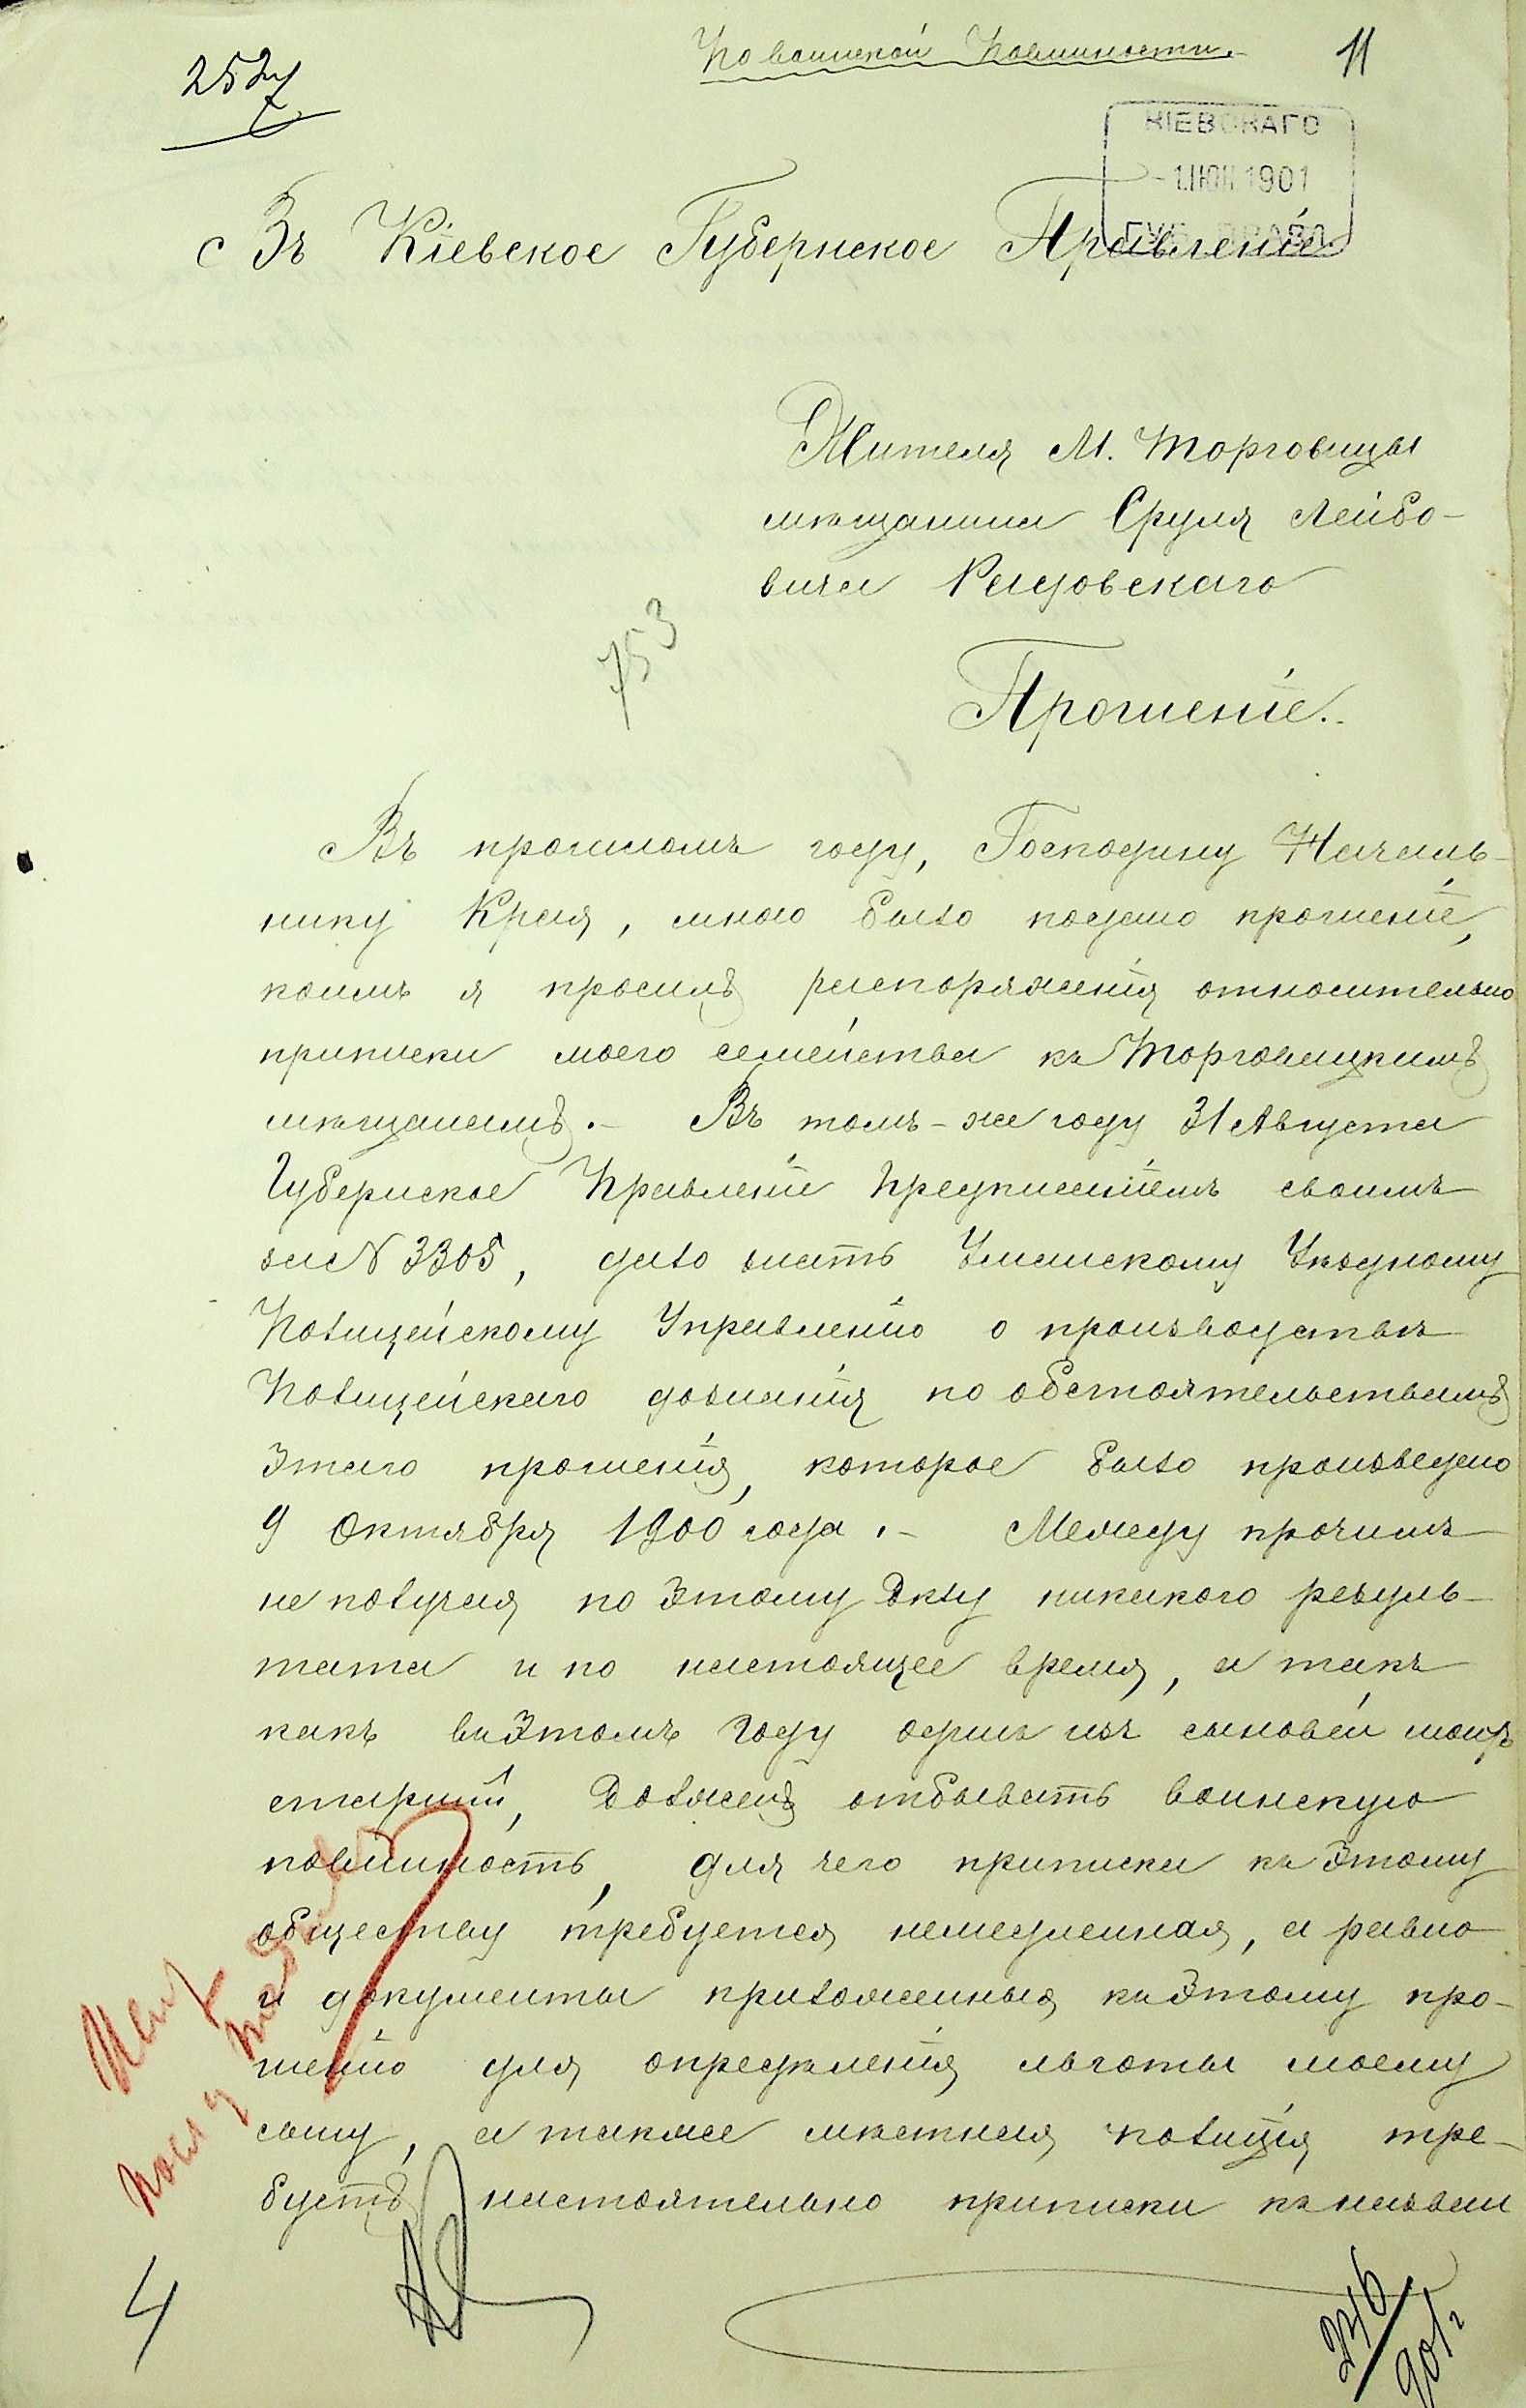 252
По воинской повинности.
11
КІЕВСКАГО
1901
Въ Кіевское Губернское Правленіе
Жителя М. Торговицы
мѣщанина Сруля Лейбо-
вича
753
Прошеніе.
Въ прошломъ году, Господину Началь-
нику Края, мною было подано прошеніе,
коимъ я просилъ распоряженія относительно
приписки моего семейства къ Торговицкимъ
мѣщанамъ.- Въ томъ-же году 31 Августа
Губернское Правленіе предписаніемъ своимъ
за N 3305, дало знать Уманскому Уѣздному
Полицейскому Управленію о производствѣ
Полицейскаго дознанія по обстоятельствамъ
этаго прошенія, которое было произведено
9 Октября 1900 года.- Между прочимъ
не получая по этому дѣлу никакого резуль-
тата и по настоящее время, а такъ
какъ въ этомъ году одинъ изъ сыновей моихъ
старшій, долженъ отбывать воинскую
повинность, для чего приписка къ этому
обществу требуется немедленная, а равно
и документы приложенныя къ этому про-
шенію для опредѣленія льготы моему
сыну, а также мѣстная полиція тре-
буетъ настоятельно приписки къ назван
4
246
901 г